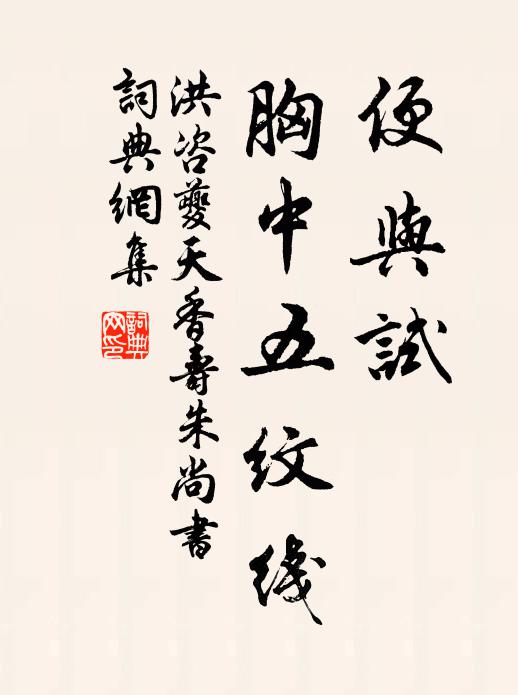 便與試
胸中五紋线
洪咨夔天香壽朱尚書
詞典網集
詞典
网印